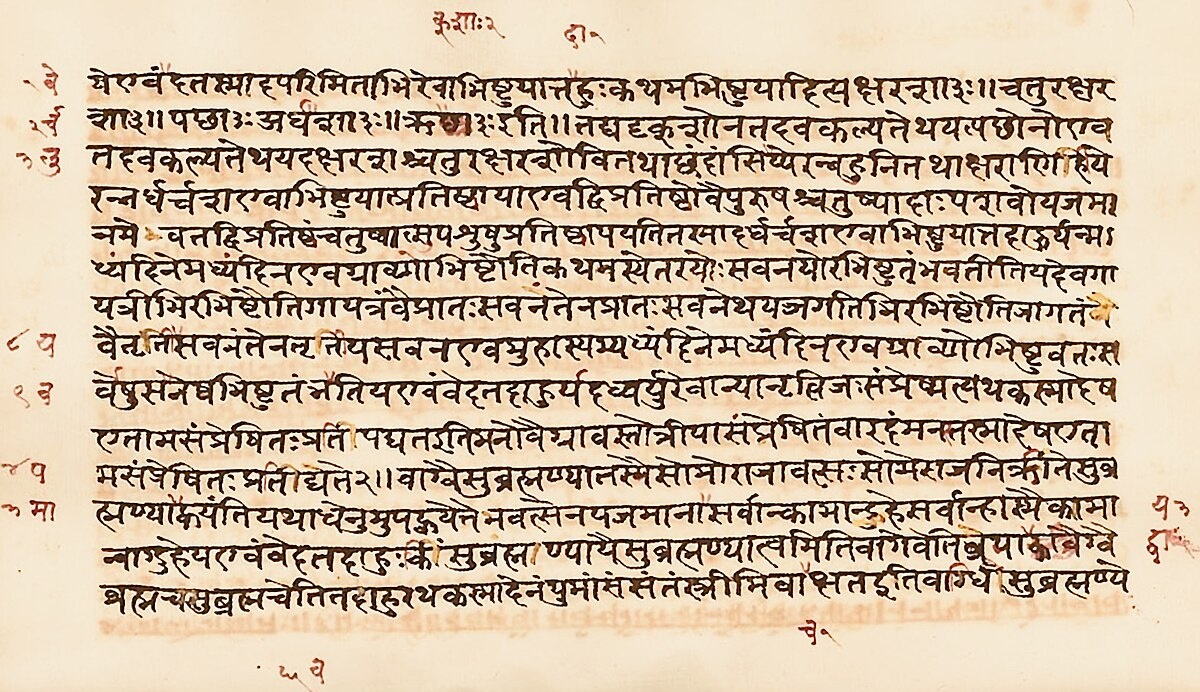 कृशाः२ दा१
२वे येएवंदतस्मादपरिमिताभिरेवाभिष्टुयात्तहुःकथमभिष्टुयादित्यक्षरशा३ः॥चतुरक्षर
२र्च शा३॥पछा३ःअर्धशा३ः॥ऋशा३ःइति॥तद्यदृक्शोनतदवकल्पतेथयत्पछोनोएव
३लु तदवकल्पतेथयदक्षरशश्चतुरक्षरशोवितथाछंदांसिप्येरन्बहुनितथाक्षराणिहिये
रन्नर्धर्चशएवाभिष्टुयात्प्रतिष्ठायाएवद्विप्रतिष्ठोवैपुरुषश्चतुष्पादाःपशवोयजमा
नमेवतद्विप्रतिष्ठंचतुष्पात्सुपशुषुप्रतिष्ठापयतितस्मादर्धर्चशएवाभिष्टुयात्तदाहुर्यन्म
ध्यंदिनेमध्यंदिनएवग्राव्णोभिष्टौतिकथमस्येतरयोःसवनयोरभिष्टुतंभवतीतियदेवगा
यत्रीभिरभिष्टौतिगायत्रंवैप्रातःसवनंतेनप्रातःसवनेथयज्जगतिभिरभिष्टौतिजागतंवै
८ य वैतृतीसवनंतेनतृतीयसवनएवमुहास्यमध्यंदिनेमध्यंदिनएवग्राव्णोभिष्टुवतःस
९ व र्वेषुसनेष्वभिष्टुतंभवतियएवंवेदतदाहुर्यदध्वर्युरेवान्यानृत्विजःसंप्रेष्यत्यथकस्मादेष
एतामसंप्रेषितःप्रतिपद्यतइतिमनोवैग्रावस्तोत्रीयासंप्रेषितंवाइदंमनस्तस्मादेषएता
४ प मसंप्रेषितःप्रतिद्यते२॥वाग्वैसुब्रह्मण्यातस्यैसोमोराजावत्सःसोमेराजनिक्रीतेसुब्र
३ मा ह्मण्यामाह्वयंतियथाधेनुमुपह्वयेत्तेनवत्सेनयजमानासर्वान्कामान्दुहेसर्वान्हास्मैकामा य३
न्वाग्दुहेयएवंवेदतदाहुःकिंसुब्रह्मण्यायैसुब्रह्मण्यात्वमितिवागेवेतिब्रूयाद्वाग्वै द्वा
ब्रह्मचसुब्रह्मचेतितदाहुरथकस्मादेनंपुमांसंसंतंस्त्रीमिवाक्षतइतिवाग्घिसुब्रह्मण्ये
चे१
५ चे